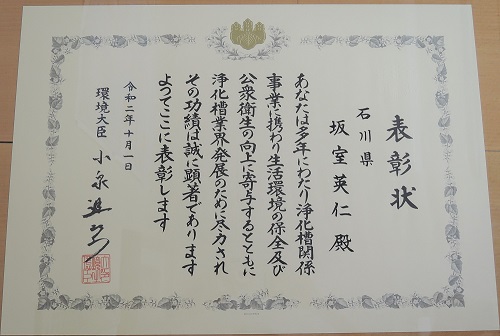 表彰状
石川県
坂室英仁 殿
あなたは多年にわたり浄化槽関係
事業に携わり生活環境の保全及び
公衆衛生の向上に寄与するとともに
浄化槽業界発展のために尽力され
その功績は誠に顕著であります
よってここに表彰します
令和二年十月一日
環境大臣 小泉進次郎